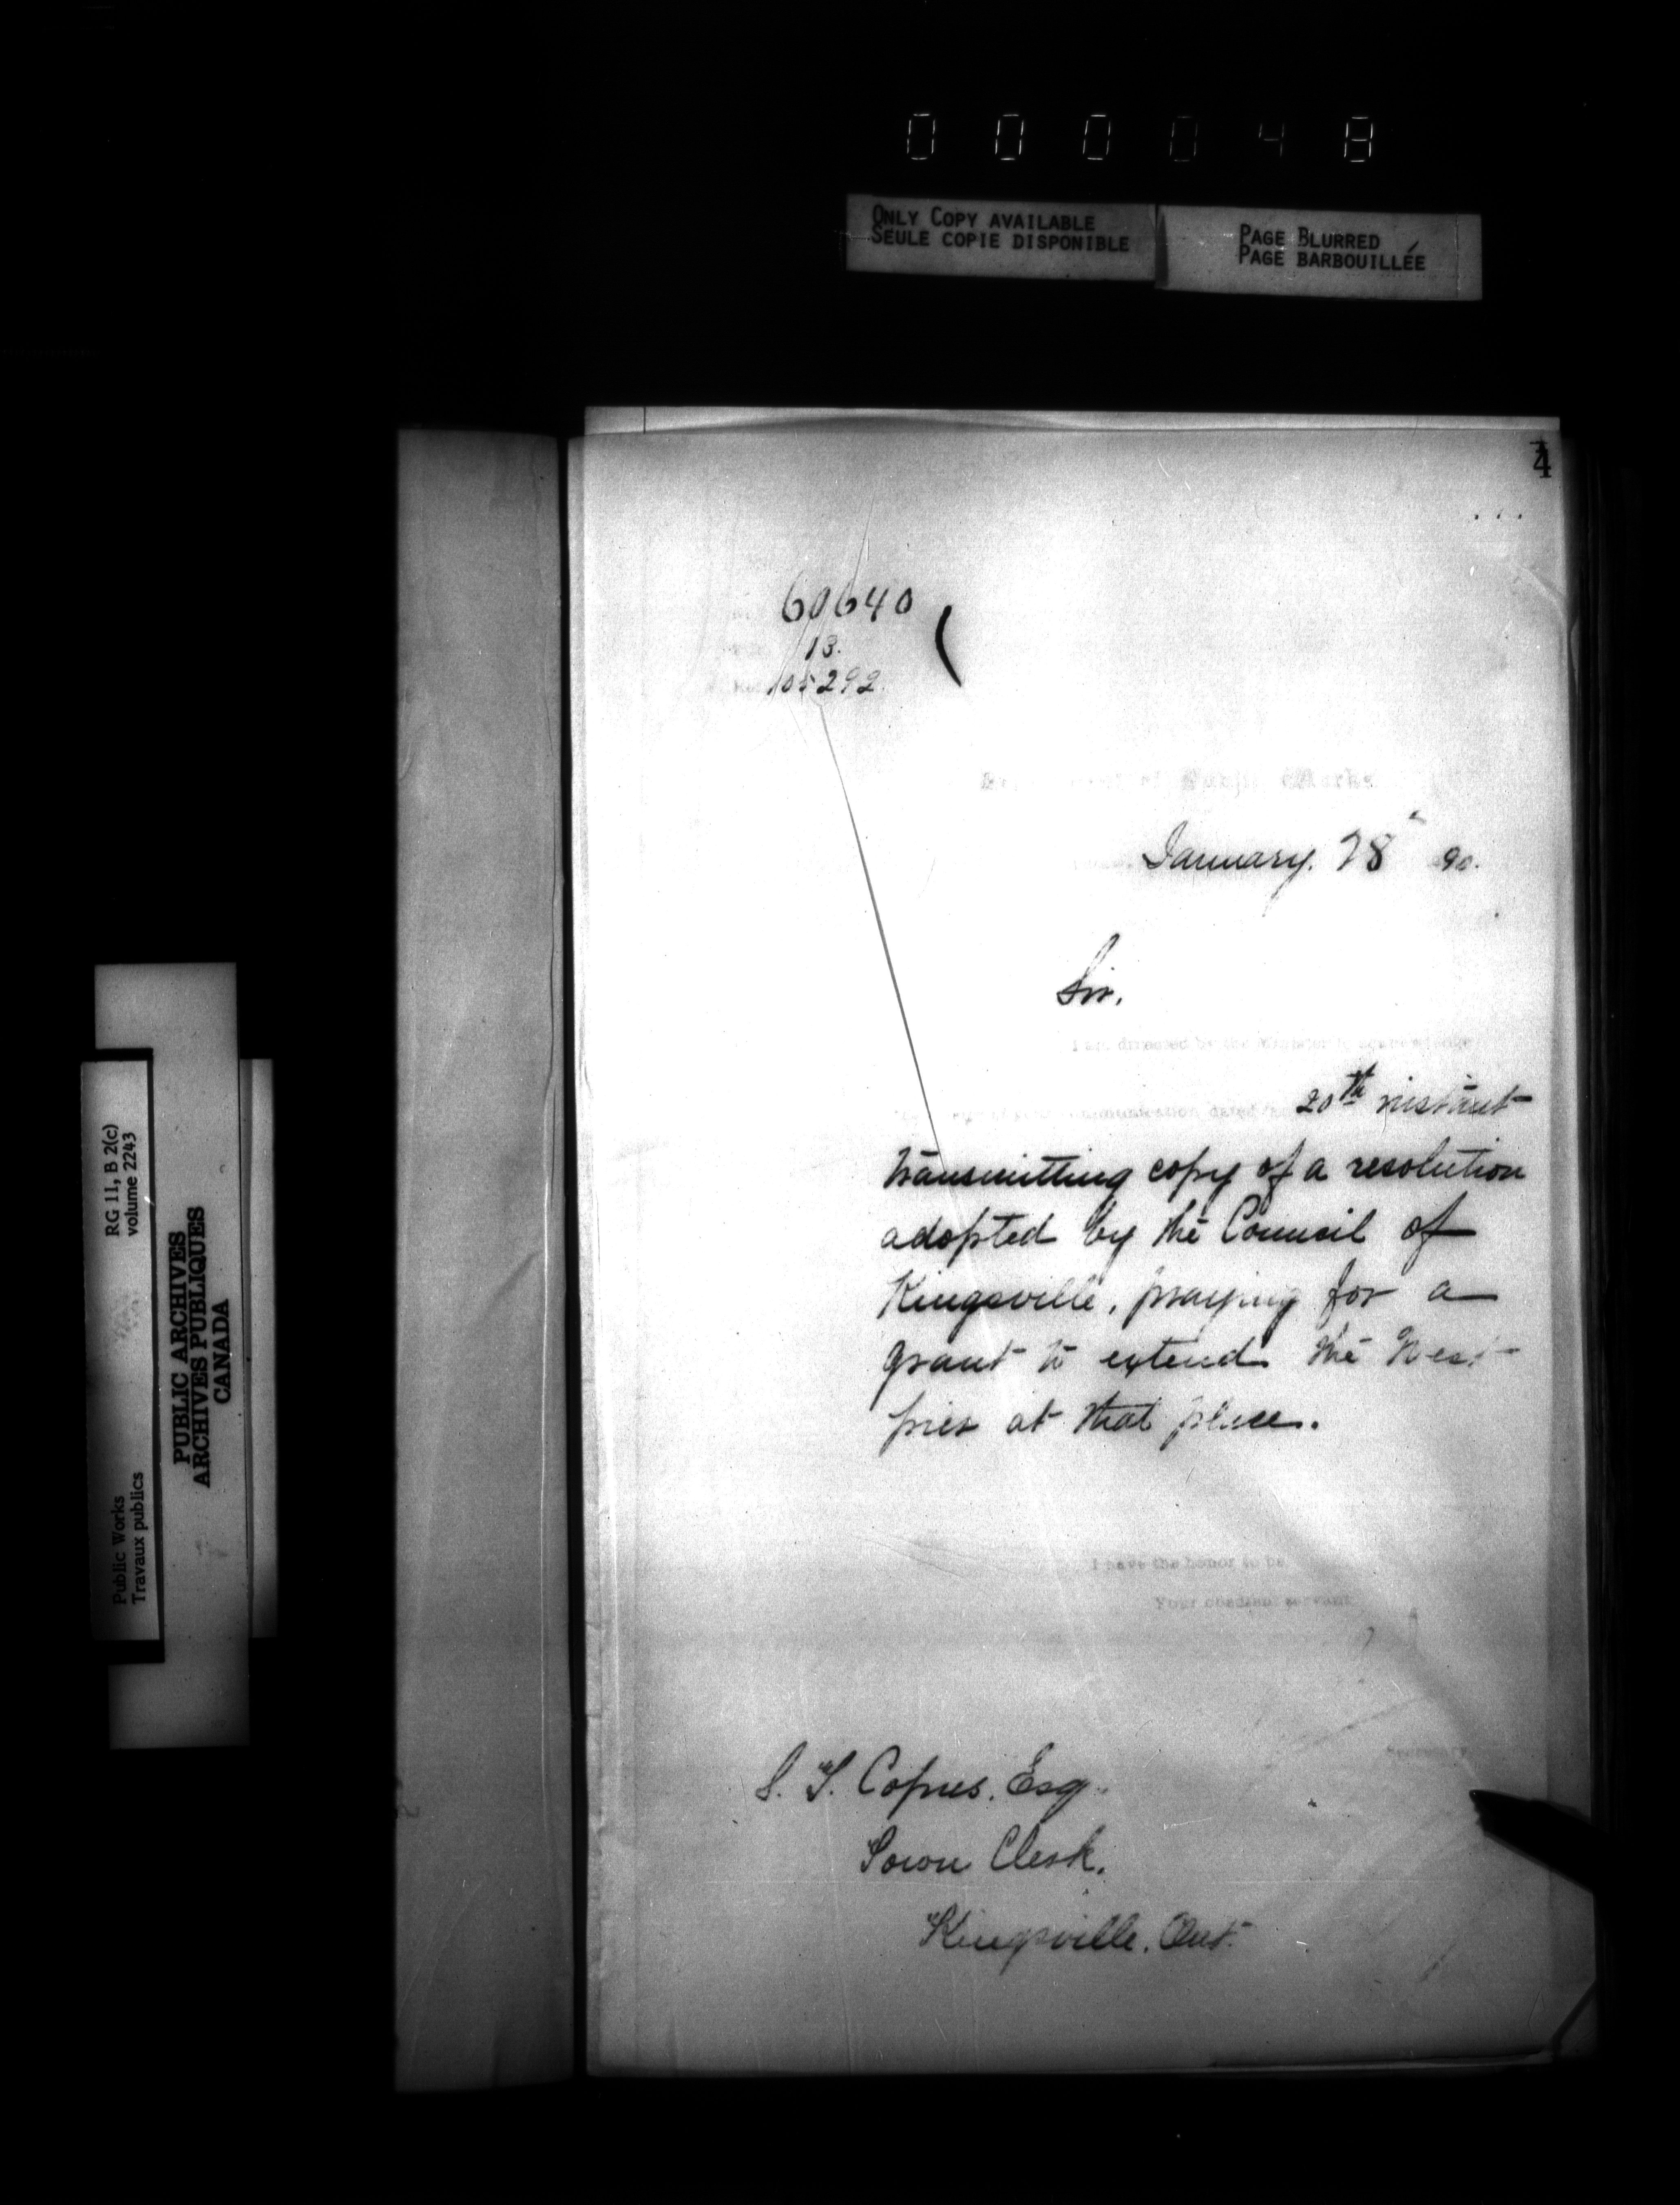 000048
ONLY COPY AVAILABLE
SEULE COPIE DISPONIBLE
PAGE BLURRED
PAGE BARBOUILLÉE
4
60640
13.
105292.
Public Works
January. 28 90.
Sir.
I am directed by the Minister to acknowledge
communication dated 20th instant
transmitting copy of a resolution
adopted by the Council of
Kingsville, praying for a
grant to extend the West
pier at that place.
I have the honor to be
Your obedient servant
Secretary
S. T. Copus. Esq.
Town Clerk.
Kingsville. Ont.
RG 11, B 2(c)
volume 2243
Public Works
Travaux publics
PUBLIC ARCHIVES
ARCHIVES PUBLIQUES
CANADA